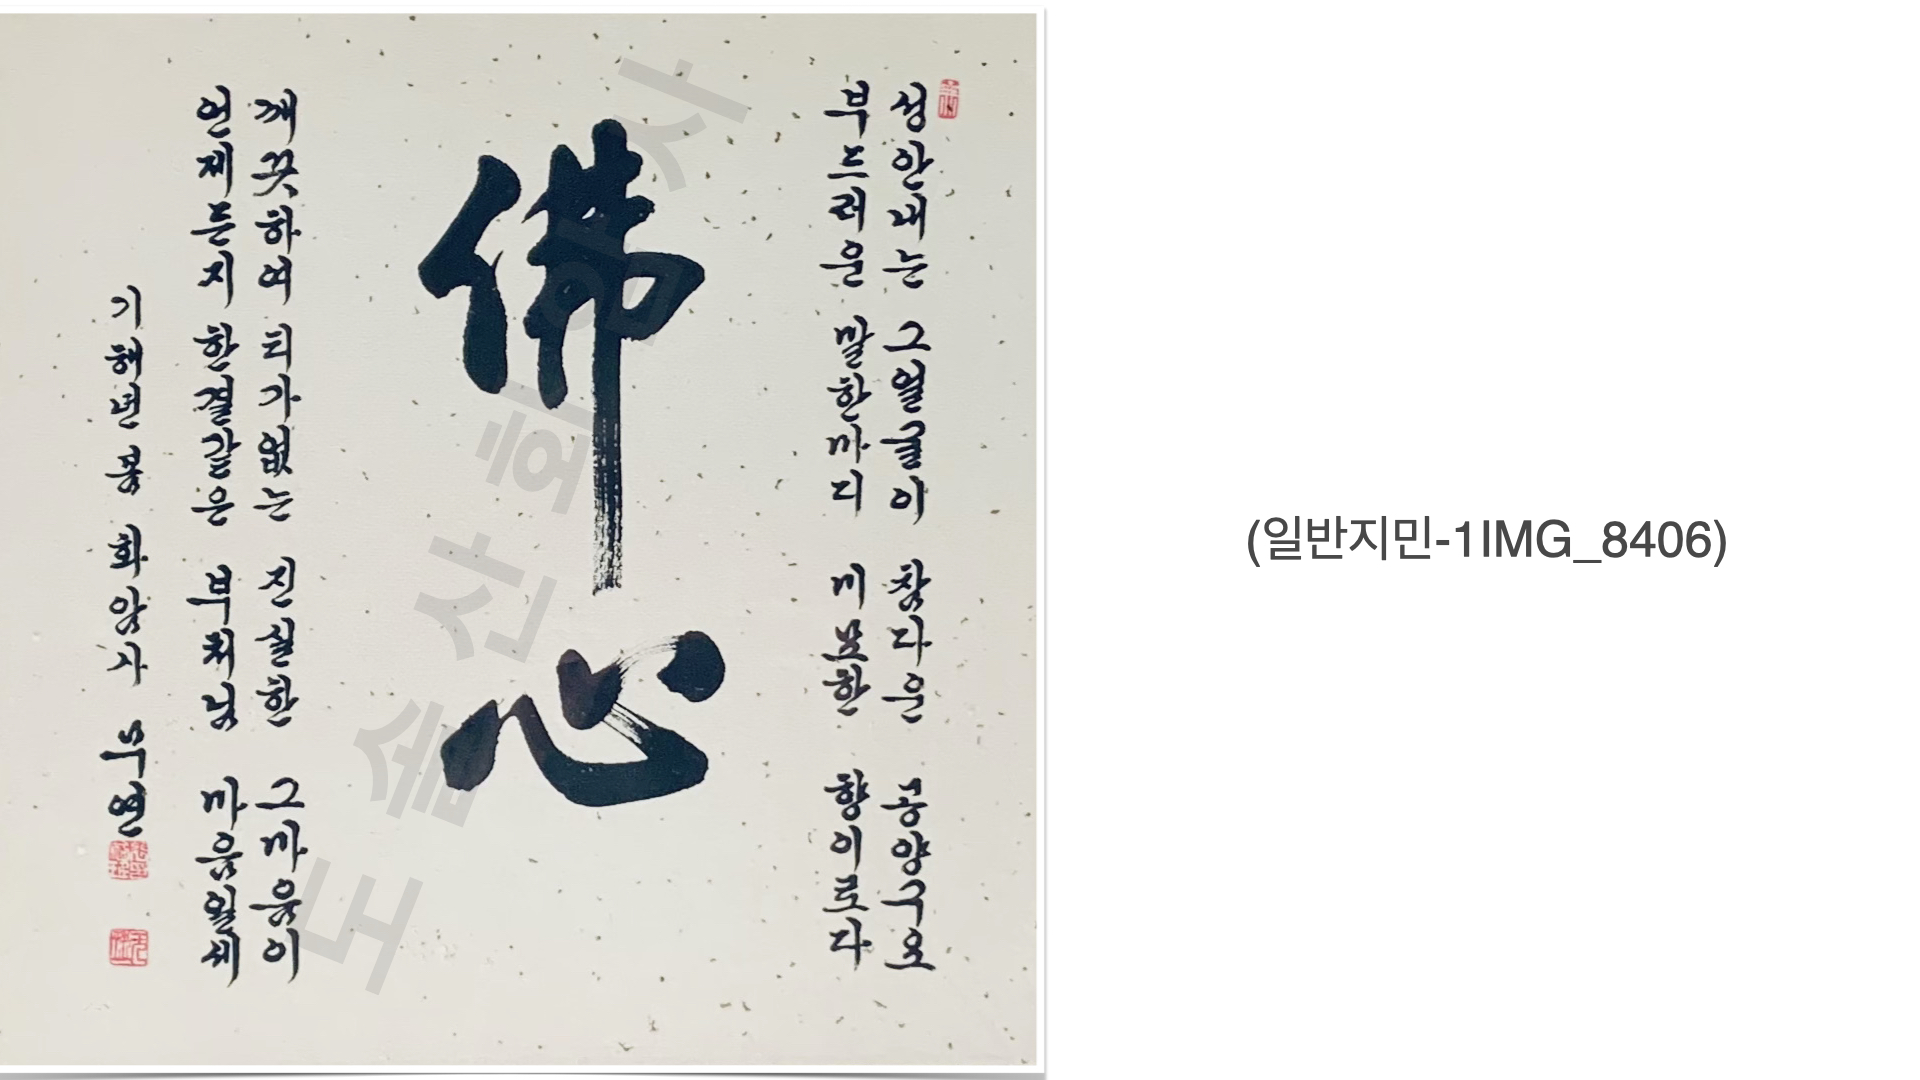 성안내는 그얼굴이 참다운 공양구요
부드러운 말한마디 미묘한 향이로다
佛心
깨끗하여 티가없는 진실한 그마음이
언제든지 한결같은 부처님 마음일세
기해년 봄 화암사 우연
도솔산화암사
(일반지민-1IMG_8406)